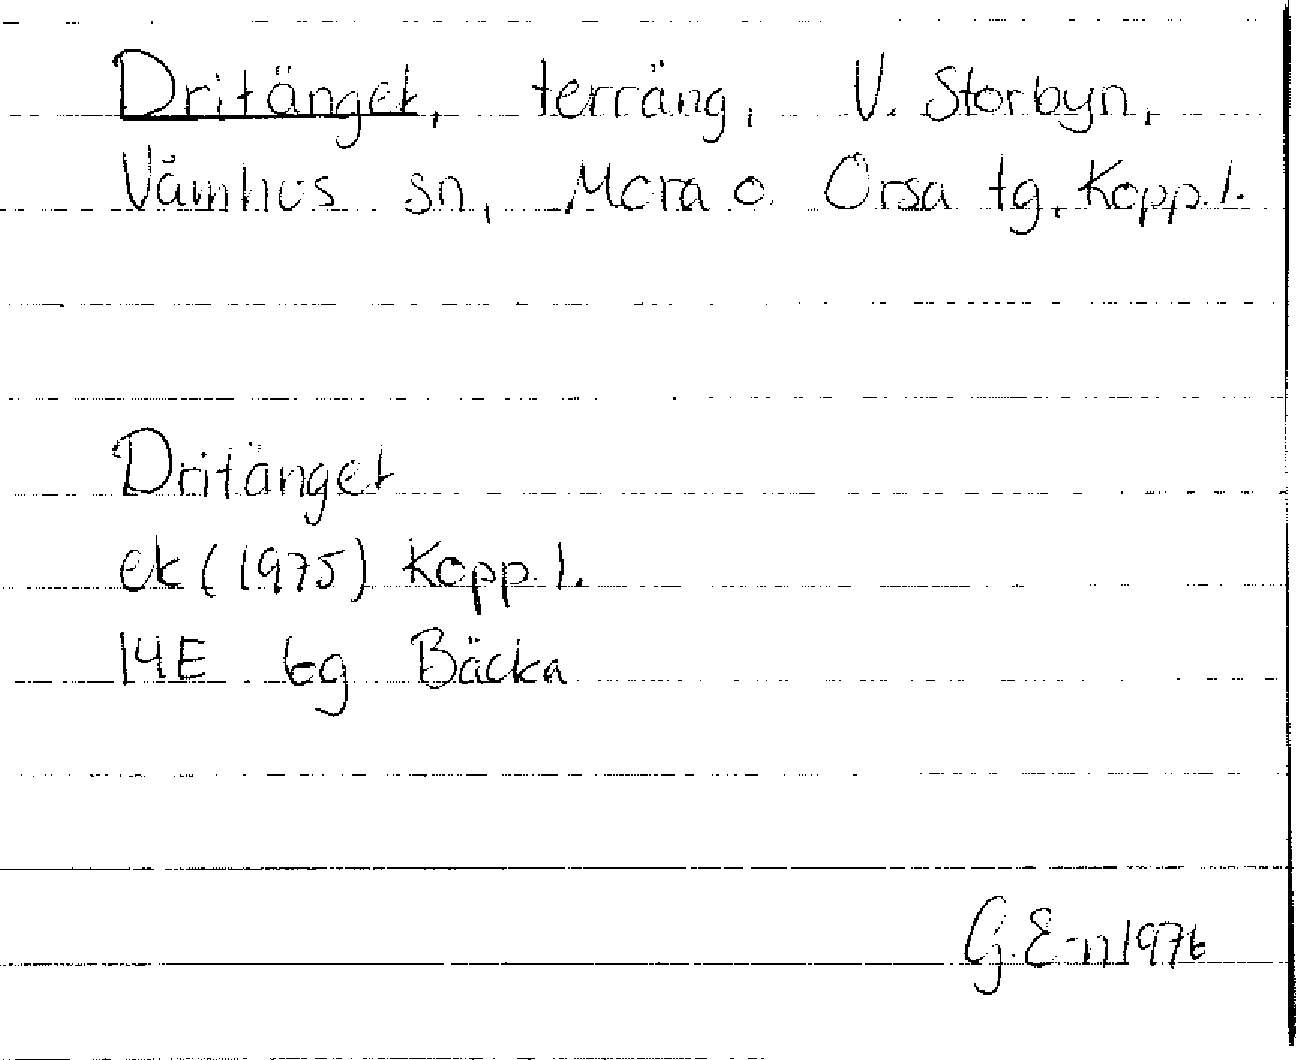 Dritänget, terräng, V. Storbyn,
Våmhus sn, Mora o. Orsa tg, Kopp. l.
Dritänget
ek (1975) Kopp. l.
14E 6g Bäcka
G. E-n 1976